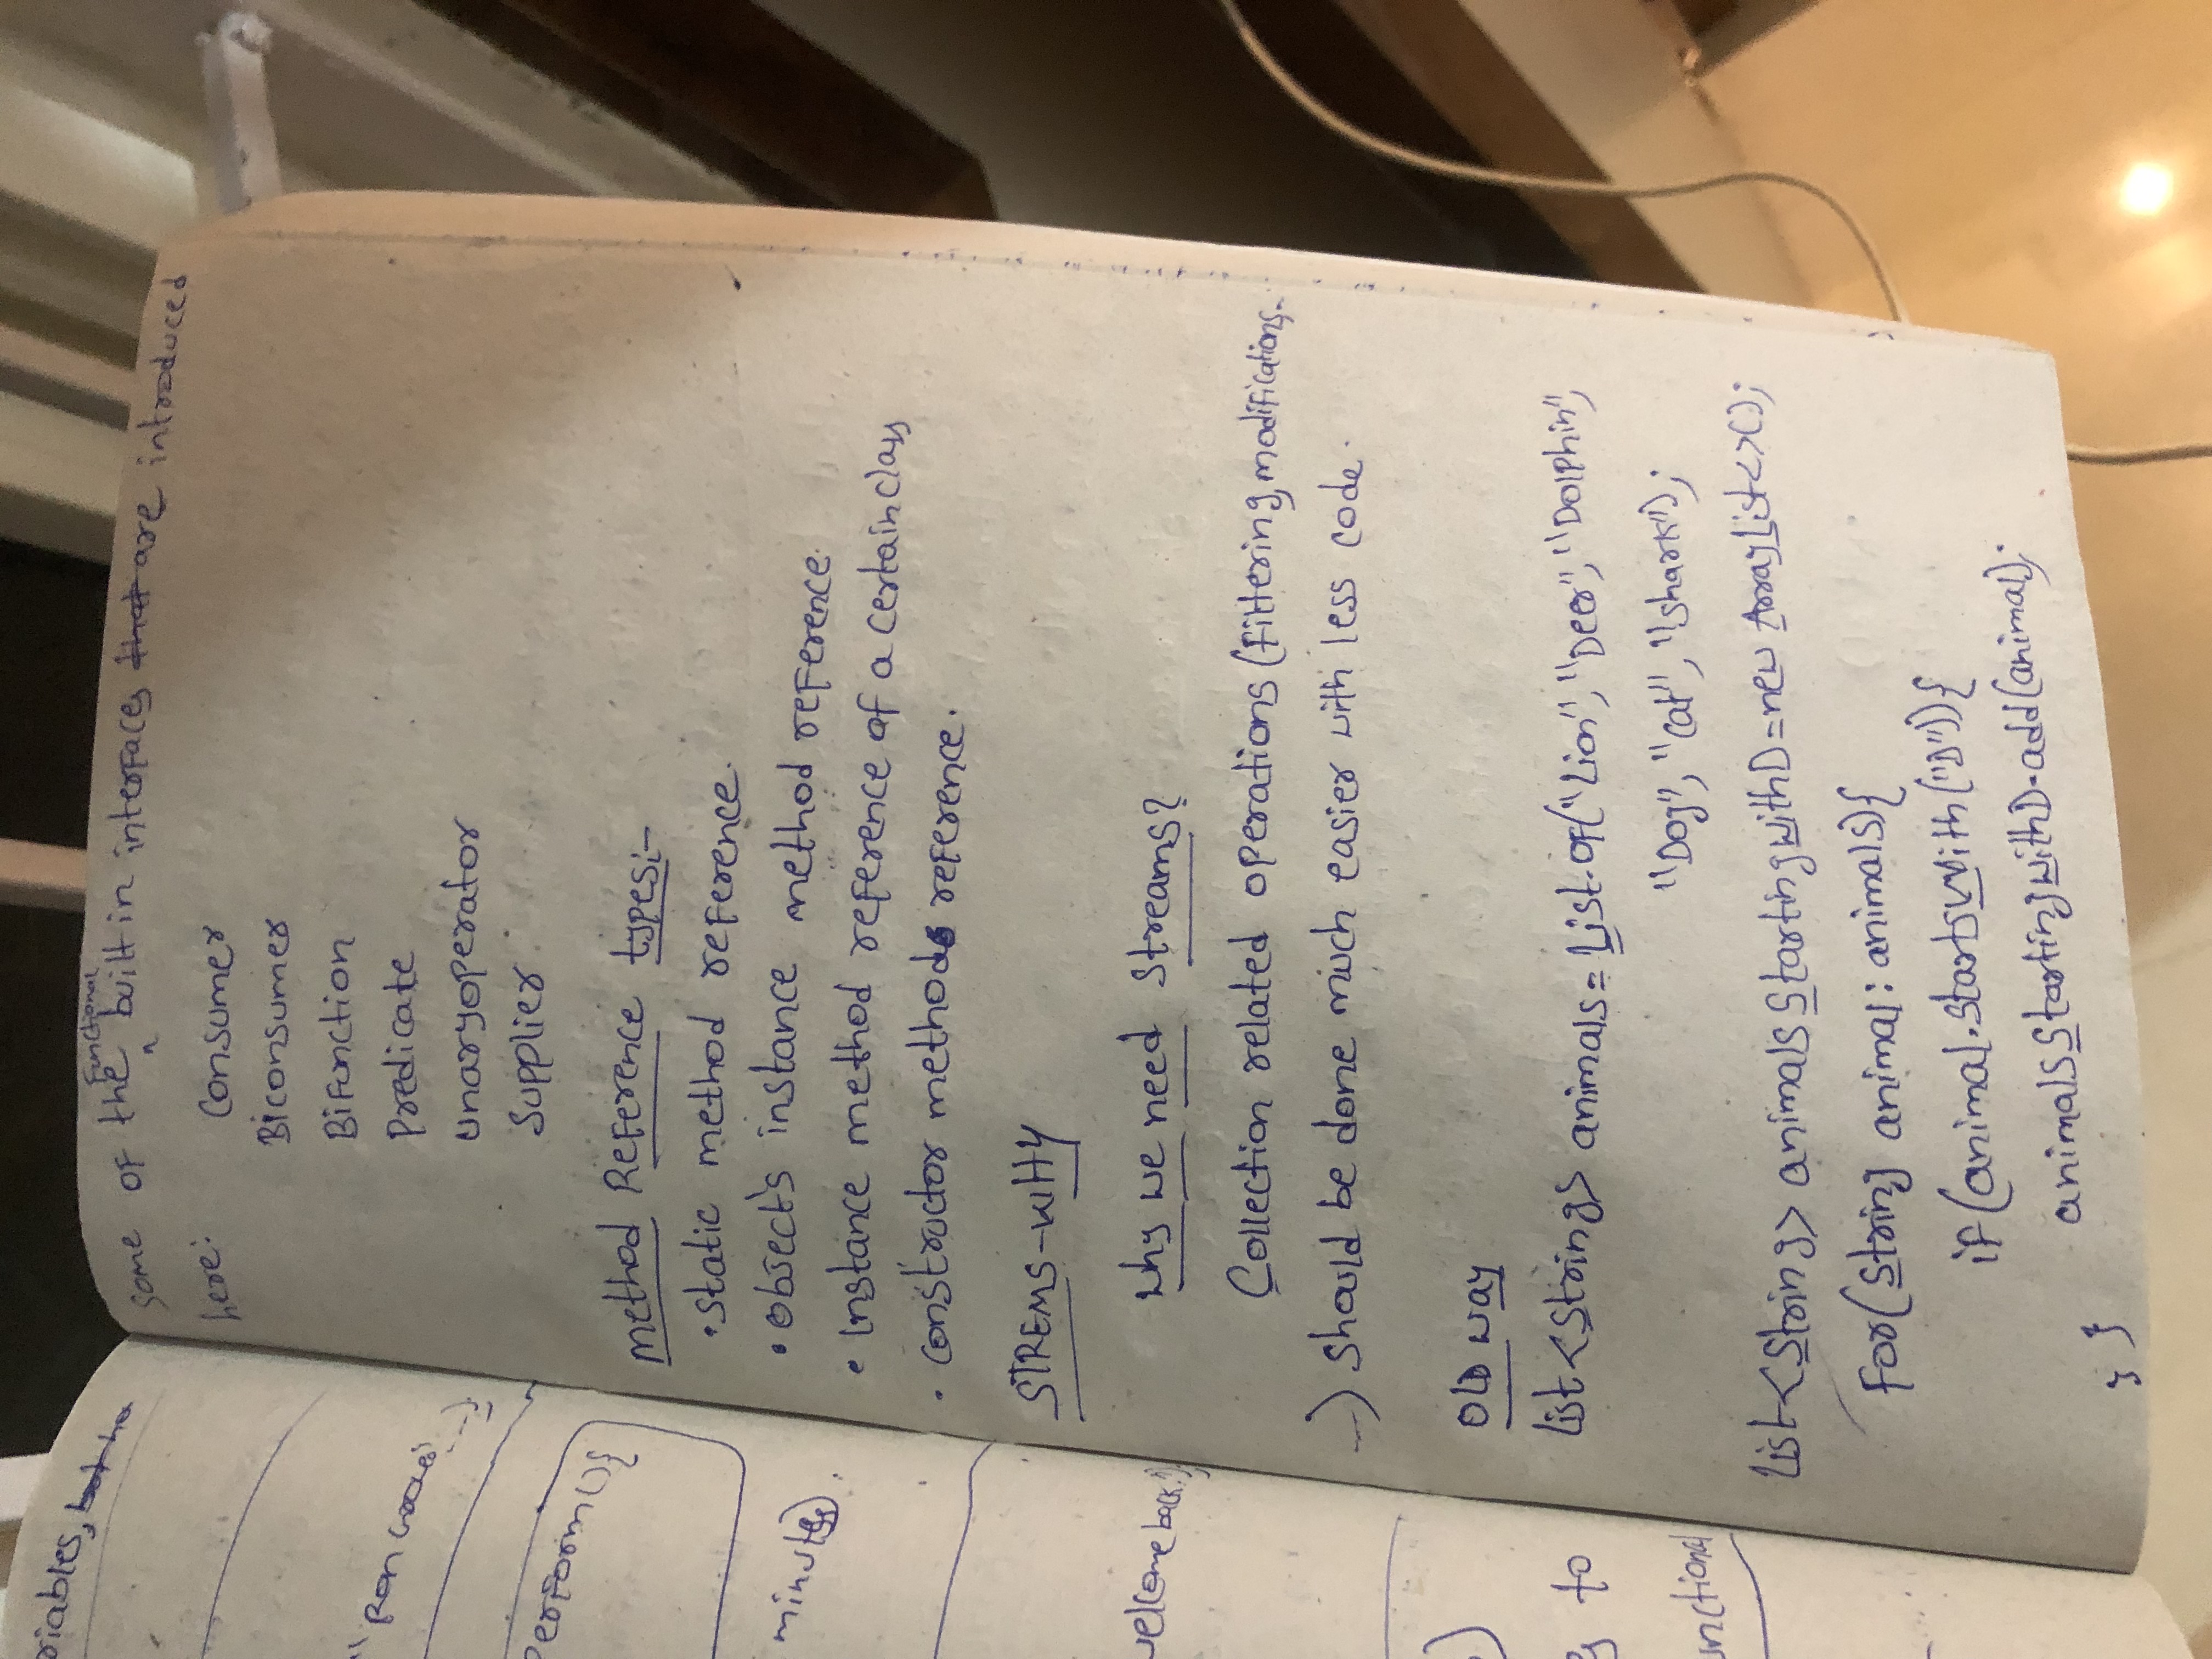 riables, but ho
" Ron
perform(){
minutes).
welcome back!")
)
g to
unctional
Functional
some of the ^ built in interfaces that are introduced
here: Consumer
Biconsumer
Bifunction
Predicate
unaryoperator
Supplier
method Reference types:-
• static method reference.
• object's instance method reference.
• Instance method reference of a certain class
• constructor method reference.
STREMS-WHY
why we need streams?
Collection related operations (filtering, modifications,..
...) should be done much easier with less code.
OLD way
List<String> animals = List.of("Lion", "Deer", "Dolphin",
"Dog", "cat", "shark");
List<String> animalsStartingWithD = new ArrayList<>();
for(String animal : animals){
if(animal.startsWith("D")){
animalsStartingWithD.add(animal);
} }